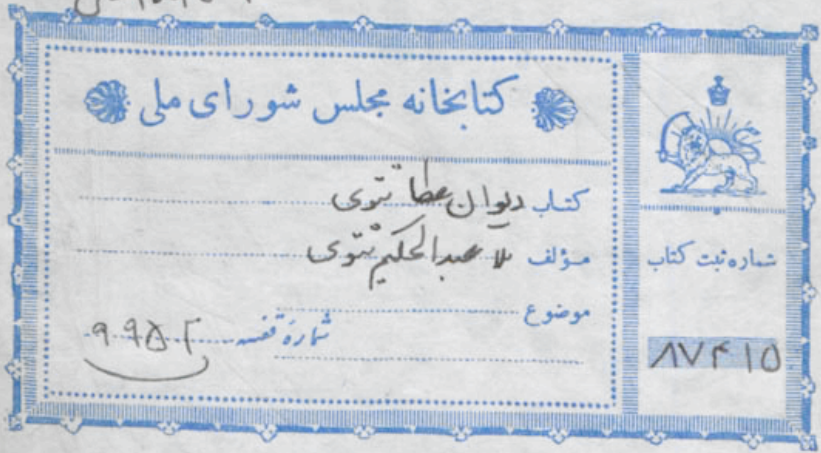 کتابخانه مجلس شورای ملی
کتاب دیوان عطا تتوی
مؤلف ملا عبدالحکیم تتوی
موضوع
شماره قفسه ۹۹۵۲
شماره ثبت کتاب
۸۷۴۱۵